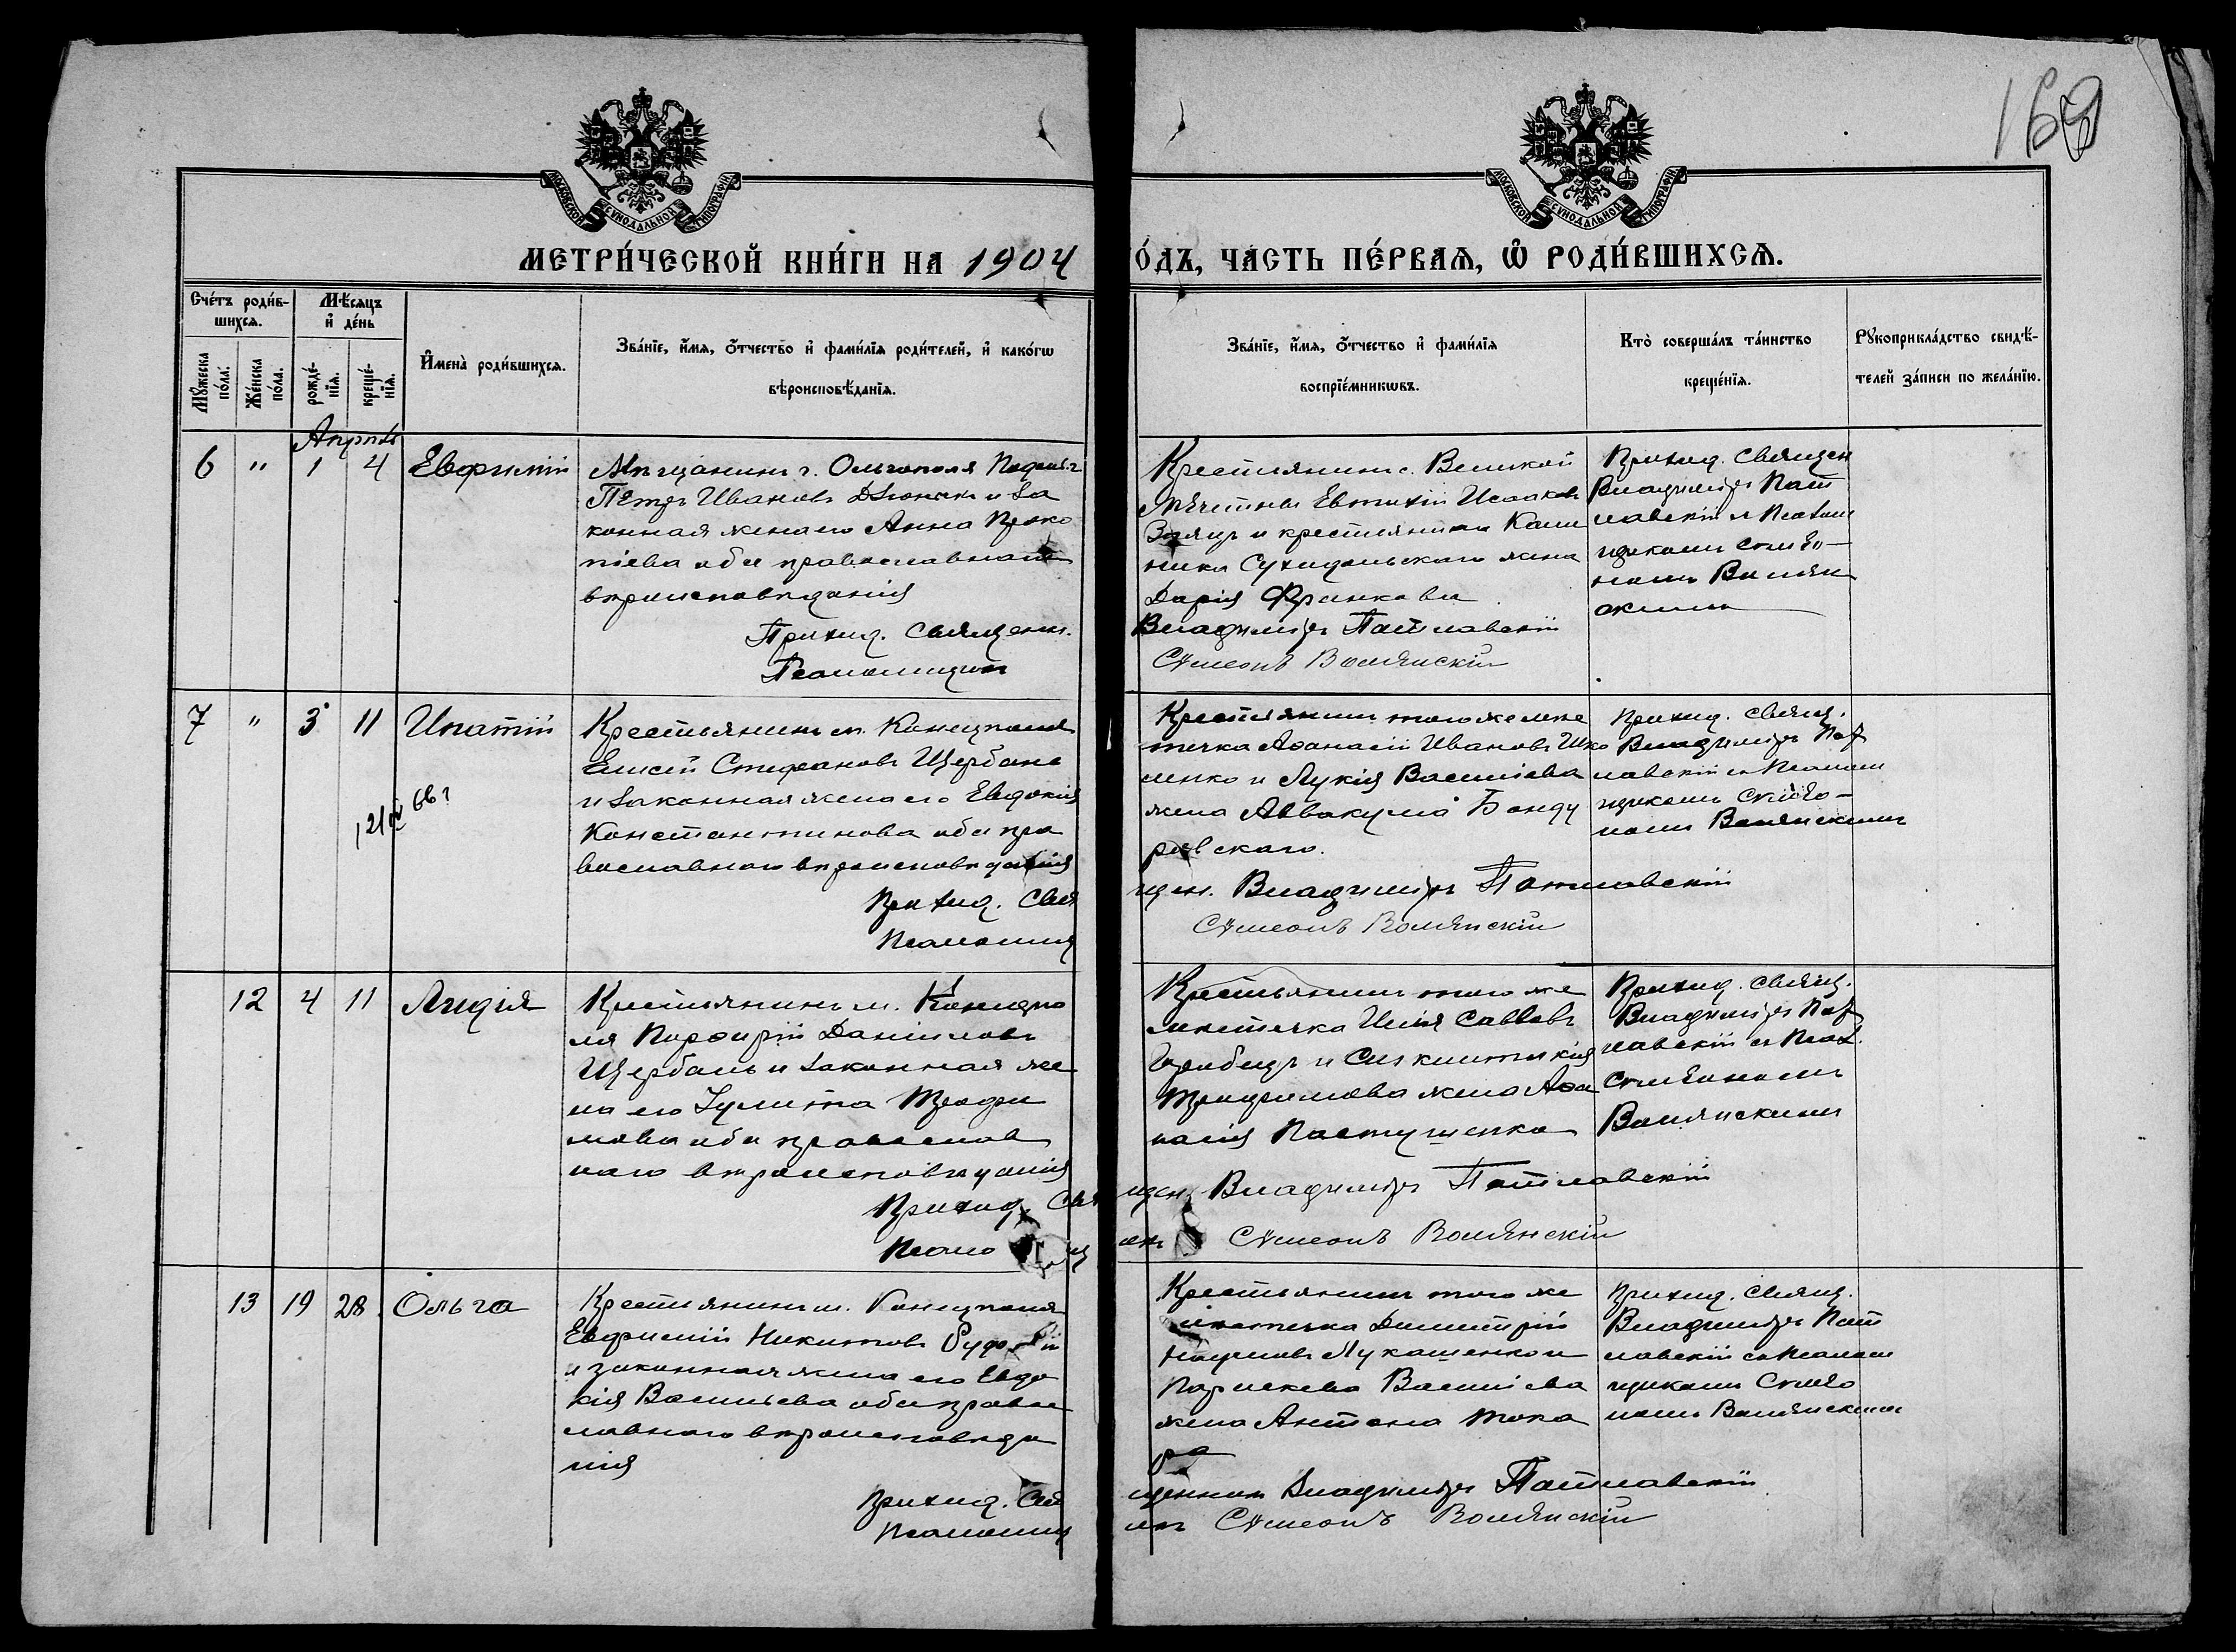 160
МОСКОВСКОЙ СѴНОДАЛЬНОЙ ТИПОГРАФІИ
МОСКОВСКОЙ СѴНОДАЛЬНОЙ ТИПОГРАФІИ
МЕТРИ́ЧЕСКОЙ КНИ́ГИ НА 1904
О́ДЪ, ЧАСТЬ ПЕ́РВАѦ, Ѡ РОДИ́ВШИХСѦ.
Сче́тъ роди́в-
шихсѧ.
Мѣ́сѧцъ
и҆ де́нь
Мꙋ́жеска
по́ла.
Же́нска
по́ла.
рожде́-
нїѧ.
креще́-
нїѧ.
И҆мена̀ роди́вшихсѧ.
Зва́нїе, и҆́мѧ, ѻ҆́тчество и҆ фами́лїѧ роди́телей, и҆ како́гѡ
вѣроисповѣ́данїѧ.
Зва́нїе, и҆́мѧ, ѻ҆́тчество и҆ фами́лїѧ
воспрїе́мникѡвъ.
Кто̀ соверша́лъ та́инство
креще́нїѧ.
Рꙋкоприкла́дство свидѣ́-
телей за́писи по жела́нїю.
Апрѣль
6 " 1 4 Евфимій
Мѣщанинъ г. Ольгополя Подольс
Петръ Ивановъ и за
конная жена его Анна Проко
піева оба православнаго
вѣроисповѣданія
Приход. Священн.
Псаломщикъ
Крестьянинъ с. Великой
Мечетны Евтихій Исааковъ
Заяцъ и крестьянина Кали
ника Суходольскаго жена
Дарія
Владиміръ Патлавскій
Сѵмеонъ Волянскій
Приход. Священ
Владиміръ Пат
лавскій съ Псалом
щикомъ Симео-
номъ Волян
скимъ
7 " 3 11 Ипатій
12/IV 66 г
Крестьянинъ м. Конецполя
Елисей Стефановъ Щербань
и законная жена его Евдокія
Константинова оба пра
вославнаго вѣроисповѣданія
Приход. Свя
Псаломщ
Крестьянинъ того же мѣс
течка Аѳанасій Ивановъ
ленко и Лукія Василіева
жена Аввакума Бонду
ровскаго.
щен. Владиміръ Патлавскій
Сѵмеонъ Волянскій
Приход. Свящ.
Владиміръ Пат
лавскій съ Псалом
щикомъ Симео-
номъ Волянскимъ
12 4 11 Лидія
Крестьянинъ м. Конецпо
ля Порфирій Даніиловъ
Щербань и законная же
на его Іулитта Трофи
мова оба православ
наго вѣроисповѣданія
Приход. Свя
Псало щ
Крестьянинъ того же
мѣстечка Илія Саввовъ
и Синклитикія
Трофимова жена Аѳа
насія Пастушенка
щен. Владиміръ Патлавскій
икъ Сѵмеонъ Волянскій
Приход. Свящ.
Владиміръ Пат
лавскій съ Псал.
Симеономъ
Волянскимъ
13 19 28 Ольга
Крестьянинъ м. Конецполя
Евфимій Никитовъ
и законная жена его Евдо
кія Васильева оба правос
лавнаго вѣроисповѣда
нія
Приход. Свя
Псаломщ
Крестьянинъ того же
мѣстечка Димитрій
Наумовъ Лукашенко и
Параскева Василіева
жена Антона Тока
ра
щенникъ Владиміръ Патлавскій
икъ Сѵмеонъ Волянскій
Приход. Свящ.
Владиміръ Пат
лавскій съ Псалом
щикомъ Симео
номъ Волянскимъ